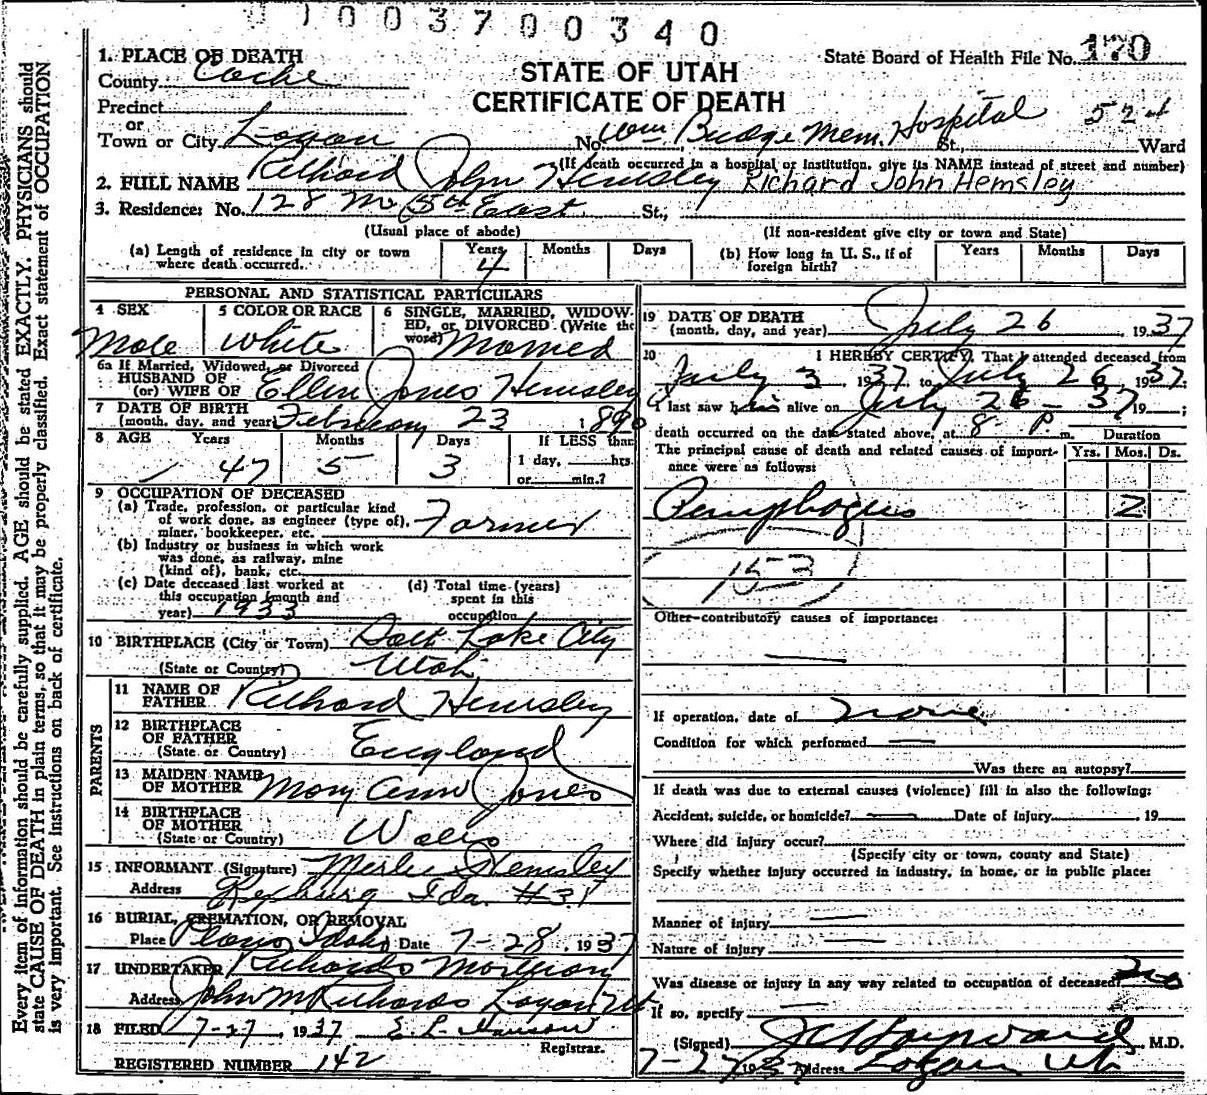 1003700340
1. PLACE OF DEATH
County Cache
Precinct
or
Town or City Logan
STATE OF UTAH
CERTIFICATE OF DEATH
State Board of Health File No. 170
No. Wm. Budge Mem. Hospital St., Ward
(If death occurred in a hospital or institution, give its NAME instead of street and number)
2. FULL NAME Richard John Hemsley Richard John Hemsley
3. Residence: No. 128 East St.,
(Usual place of abode) (If non-resident give city or town and State)
(a) Length of residence in city or town where death occurred. Years 4 Months Days
(b) How long in U. S., if of foreign birth? Years Months Days
PERSONAL AND STATISTICAL PARTICULARS
4 SEX Male
5 COLOR OR RACE White
6 SINGLE, MARRIED, WIDOWED, or DIVORCED (Write the word) Married
6a If Married, Widowed, or Divorced
HUSBAND OF
(or) WIFE OF Ellen Jones Hemsley
7 DATE OF BIRTH
(month, day, and year) February 23 1890
8 AGE Years 47 Months 5 Days 3 If LESS than 1 day, hrs. or min.?
9 OCCUPATION OF DECEASED
(a) Trade, profession, or particular kind
of work done, as engineer (type of),
miner, bookkeeper, etc. Farmer
(b) Industry or business in which work
was done, as railway, mine
(kind of), bank, etc.
(c) Date deceased last worked at
this occupation (month and
year) 1933
(d) Total time (years)
spent in this
occupation
10 BIRTHPLACE (City or Town) Salt Lake City
(State or Country) Utah
PARENTS
11 NAME OF
FATHER Richard Hemsley
12 BIRTHPLACE
OF FATHER
(State or Country) England
13 MAIDEN NAME
OF MOTHER Mary Ann Jones
14 BIRTHPLACE
OF MOTHER
(State or Country) Wales
15 INFORMANT (Signature) Merle Hemsley
Address Rexburg Ida. #31
16 BURIAL, CREMATION, OR REMOVAL
Place Plano, Idaho Date 7-28, 1937
17 UNDERTAKER Richards Mortuary
Address John M Richards Logan Ut
18 FILED 7-27, 1937 E. L. Hanson
Registrar.
REGISTERED NUMBER 142
19 DATE OF DEATH
(month, day, and year) July 26, 1937
20 I HEREBY CERTIFY, That I attended deceased from
July 3, 1937, to July 26, 1937;
I last saw him alive on July 26 - 37, 19 ;
death occurred on the date stated above, at 8 P m.
Duration
The principal cause of death and related causes of importance were as follows: Yrs. Mos. Ds.
Pemphagus 2
153
Other contributory causes of importance:
If operation, date of none
Condition for which performed
Was there an autopsy?
If death was due to external causes (violence) fill in also the following:
Accident, suicide, or homicide? Date of injury , 19
Where did injury occur?
(Specify city or town, county and State)
Specify whether injury occurred in industry, in home, or in public place:
Manner of injury
Nature of injury
Was disease or injury in any way related to occupation of deceased? no
If so, specify
(Signed) Hayward M.D.
7-27 1937 Address Logan Ut.
Every item of information should be carefully supplied. AGE should be stated EXACTLY. PHYSICIANS should
state CAUSE OF DEATH in plain terms, so that it may be properly classified. Exact statement of OCCUPATION
is very important. See instructions on back of certificate.